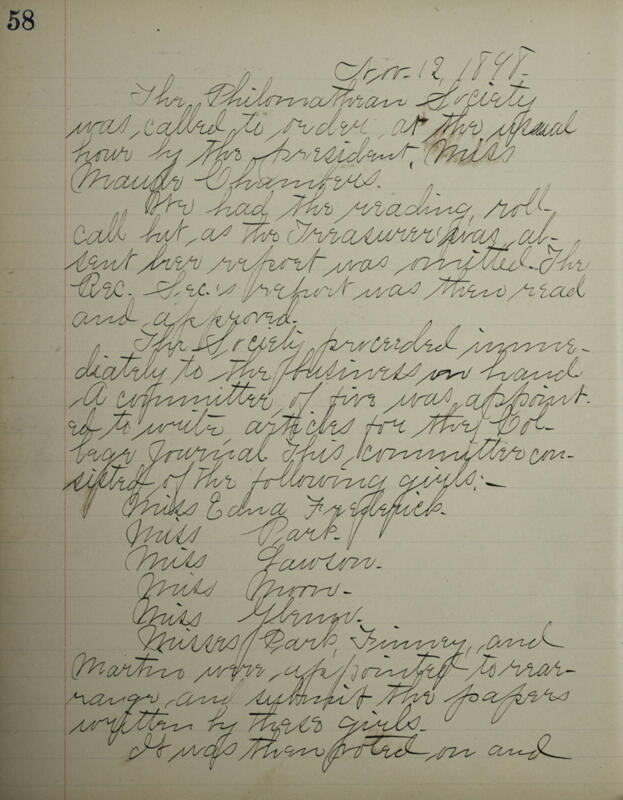 58
Nov. 12, 1898.
The Philomathean Society
was called to order at the usual
hour by the president, Miss
Maude Chambers.
We had the reading, roll-
call but as the Treasurer was ab-
sent her report was omitted. The
Rec. Sec.'s report was then read
and approved.
The Society proceeded imme-
diately to the business on hand
A committee of five was appoint-
ed to write articles for the Col-
lege Journal This committee con-
sisted of the following girls:-
Miss Edna Frederick.
Miss Park.
Miss Lawson.
Miss Moon.
Miss
Misses Park, Finney, and
Martin were appointed to rear-
range and submit the papers
written by these girls.
It was then voted on and